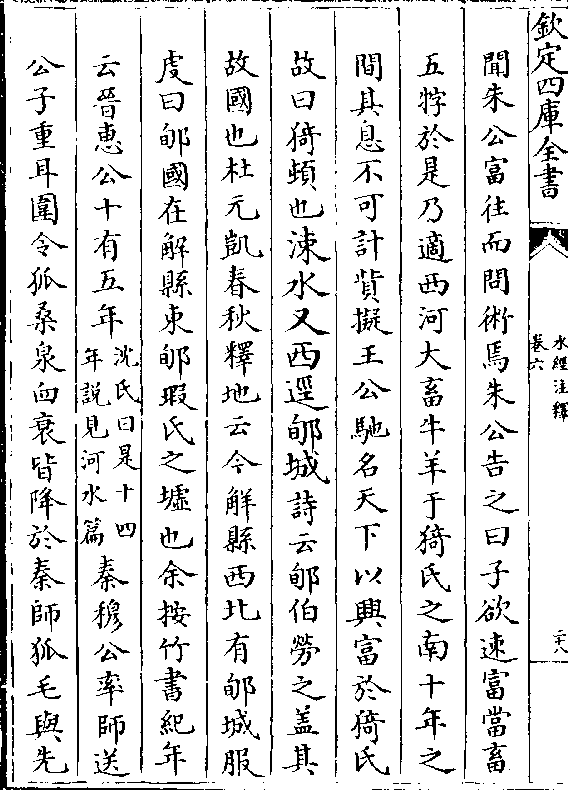 欽定四庫全書
水經注釋
卷六
二十八
聞朱公富往而問術焉朱公告之曰子欲速富當畜
五牸於是乃適西河大畜牛羊于猗氏之南十年之
間其息不可計貲擬王公馳名天下以興富於猗氏
故曰猗頓也涑水又西逕郇城詩云郇伯勞之盖其
故國也杜元凱春秋釋地云今解縣西北有郇城服
虔曰郇國在解縣東郇瑕氏之墟也余按竹書紀年
云晉惠公十有五年沈氏曰是十四
年說見河水篇秦穆公率師送
公子重耳圍令狐桑泉臼衰皆降於秦師狐毛與先